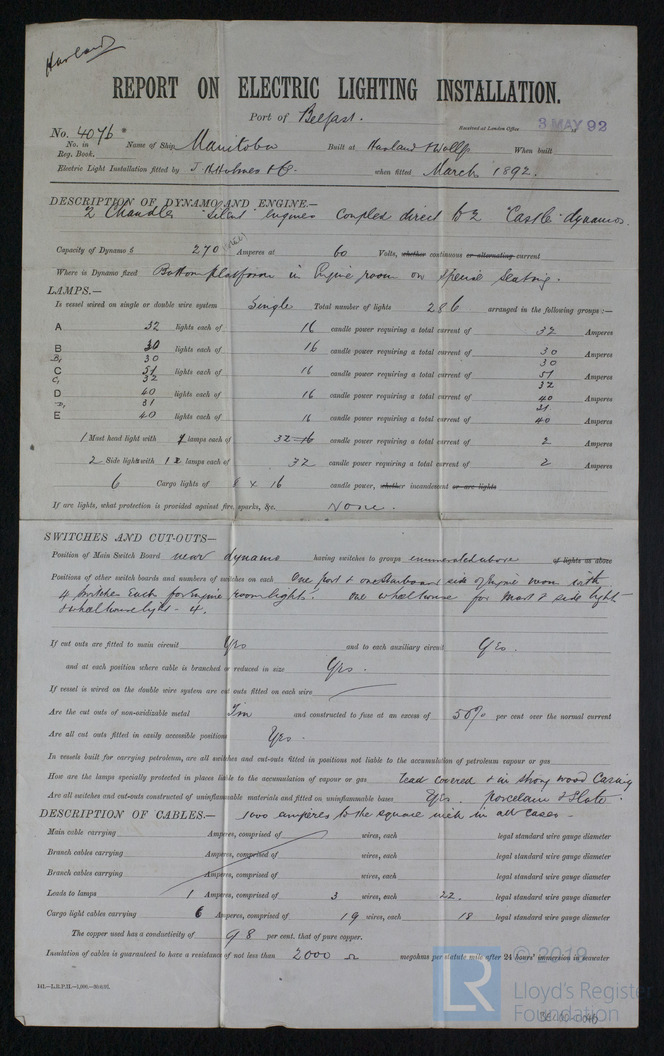 Harland
REPORT ON ELECTRIC LIGHTING INSTALLATION.
Port of Belfast.
Received at London Office 3 MAY 92
No. 4076
No. in Reg. Book. Name of Ship Manitoba Built at Harland & Wolff When built
Electric Light Installation fitted by J H Holmes & Co. when fitted March 1892.
DESCRIPTION OF DYNAMO AND ENGINE.—
2 Chandler "Silent" engines coupled direct to 2 "Castle" dynamos.
Capacity of Dynamo s 270 (each) Amperes at 60 Volts, whether continuous or alternating current
Where is Dynamo fixed Bottom platform in Engine room on special seating.
LAMPS.—
Is vessel wired on single or double wire system Single Total number of lights 286 arranged in the following groups:—
A 32 lights each of 16 candle power requiring a total current of 32 Amperes
B 30 lights each of 16 candle power requiring a total current of 30 Amperes
B1 30 30
C 51 lights each of 16 candle power requiring a total current of 51 Amperes
C1 32 32
D 40 lights each of 16 candle power requiring a total current of 40 Amperes
D1 31 31
E 40 lights each of 16 candle power requiring a total current of 40 Amperes
1 Mast head light with 1 lamps each of 32 16 candle power requiring a total current of 2 Amperes
2 Side lights with 1 lamps each of 32 candle power requiring a total current of 2 Amperes
6 Cargo lights of 8 x 16 candle power, whether incandescent or arc lights
If arc lights, what protection is provided against fire, sparks, &c. None.
SWITCHES AND CUT-OUTS—
Position of Main Switch Board near dynamo having switches to groups enumerated above of lights as above
Positions of other switch boards and numbers of switches on each One port & one starboard side of Engine room with
4 switches each for Engine room lights. One wheelhouse for mast & side light
& wheelhouse lights - 4.
If cut outs are fitted to main circuit Yes and to each auxiliary circuit Yes.
and at each position where cable is branched or reduced in size Yes.
If vessel is wired on the double wire system are cut outs fitted on each wire
Are the cut outs of non-oxidizable metal Tin and constructed to fuse at an excess of 50% per cent over the normal current
Are all cut outs fitted in easily accessible positions Yes.
In vessels built for carrying petroleum, are all switches and cut-outs fitted in positions not liable to the accumulation of petroleum vapour or gas
How are the lamps specially protected in places liable to the accumulation of vapour or gas lead covered & in strong wood casing
Are all switches and cut-outs constructed of uninflammable materials and fitted on uninflammable bases Yes. Porcelain & Slate.
DESCRIPTION OF CABLES.— 1000 amperes to the square inch in all cases.
Main cable carrying Amperes, comprised of wires, each legal standard wire gauge diameter
Branch cables carrying Amperes, comprised of wires, each legal standard wire gauge diameter
Branch cables carrying Amperes, comprised of wires, each legal standard wire gauge diameter
Leads to lamps 1 Amperes, comprised of 3 wires, each 22. legal standard wire gauge diameter
Cargo light cables carrying 6 Amperes, comprised of 19 wires, each 18 legal standard wire gauge diameter
The copper used has a conductivity of 98 per cent. that of pure copper.
Insulation of cables is guaranteed to have a resistance of not less than 2000 megohms per statute mile after 24 hours' immersion in seawater
© 2019
LR
Lloyd's Register
Foundation